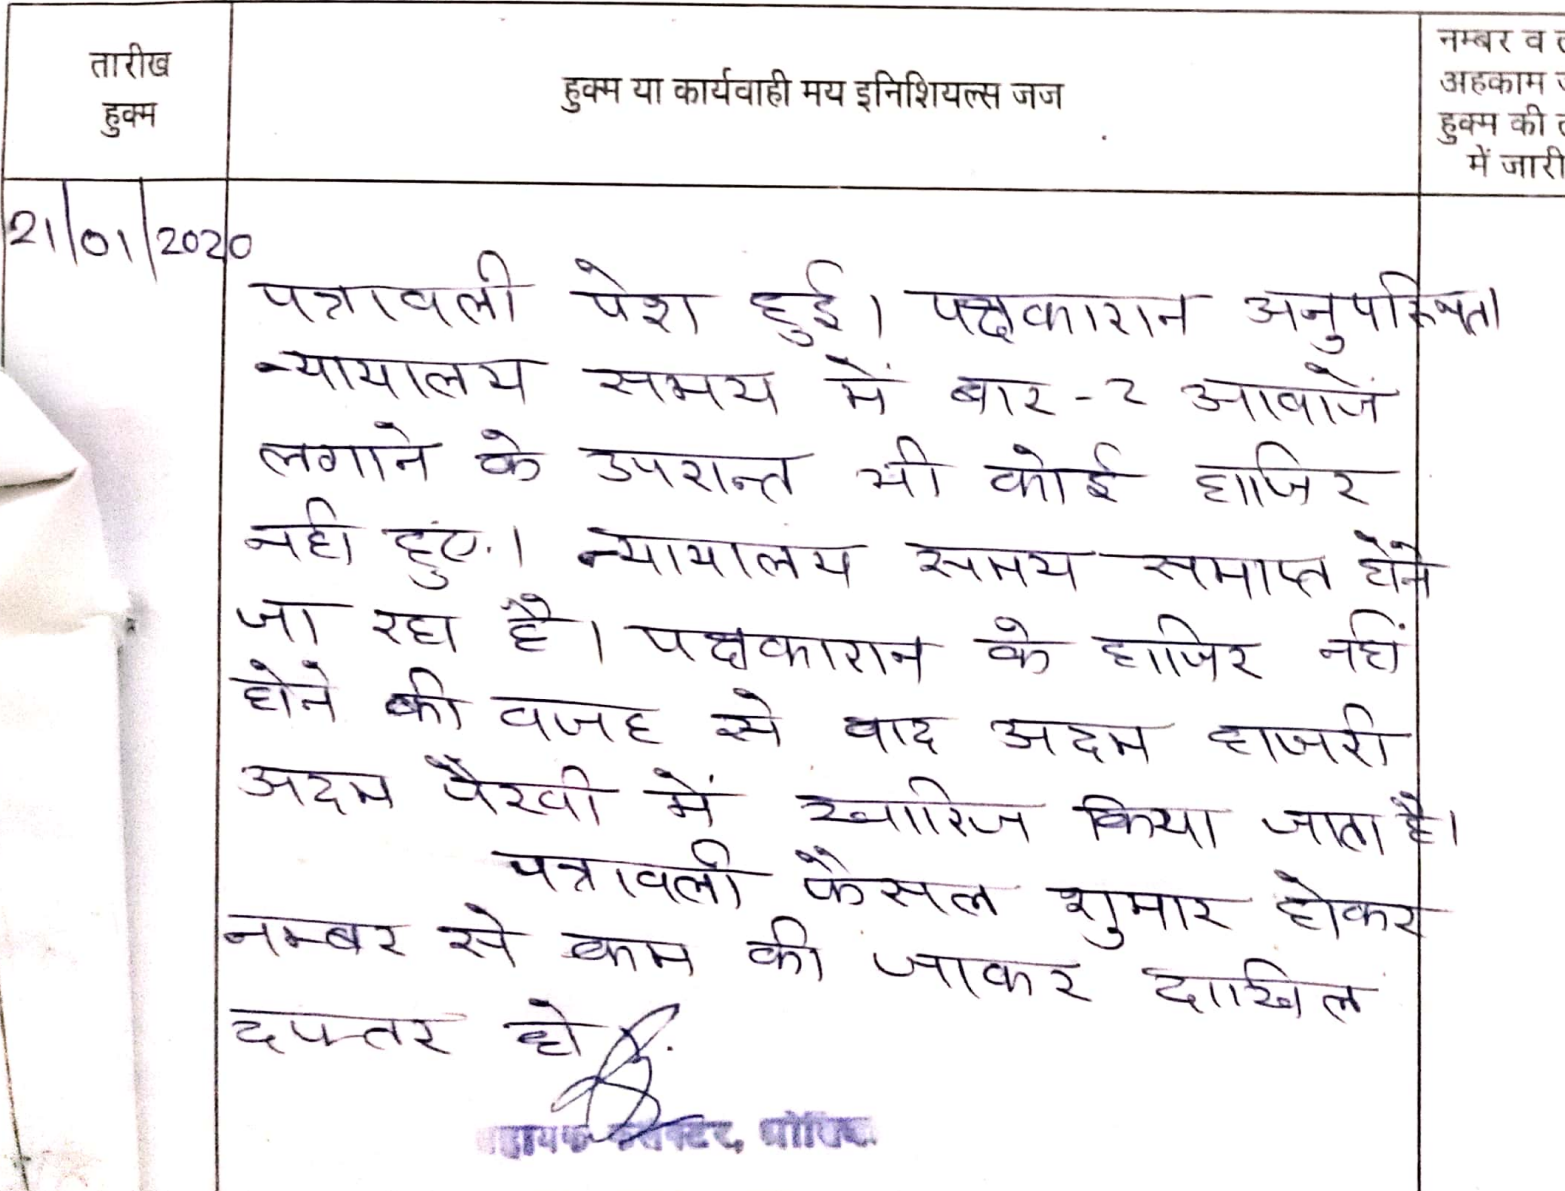 तारीख
हुक्म
हुक्म या कार्यवाही मय इनिशियल्स जज
नम्बर व
अहकाम
हुक्म की
में जारी
21/01/2020
पत्रावली पेश हुई। पक्षकारान अनुपस्थित।
न्यायालय समय में बार-2 आवाजें
लगाने के उपरान्त भी कोई हाजिर
नही हुए। न्यायालय समय समाप्त होने
जा रहा है। पक्षकारान के हाजिर नहीं
होने की वजह से वाद अदम हाजरी
अदम पैरवी में खारिज किया जाता है।
पत्रावली फैसल शुमार होकर
नम्बर से कम की जाकर दाखिल
दफ्तर हो
सहायक कलेक्टर,